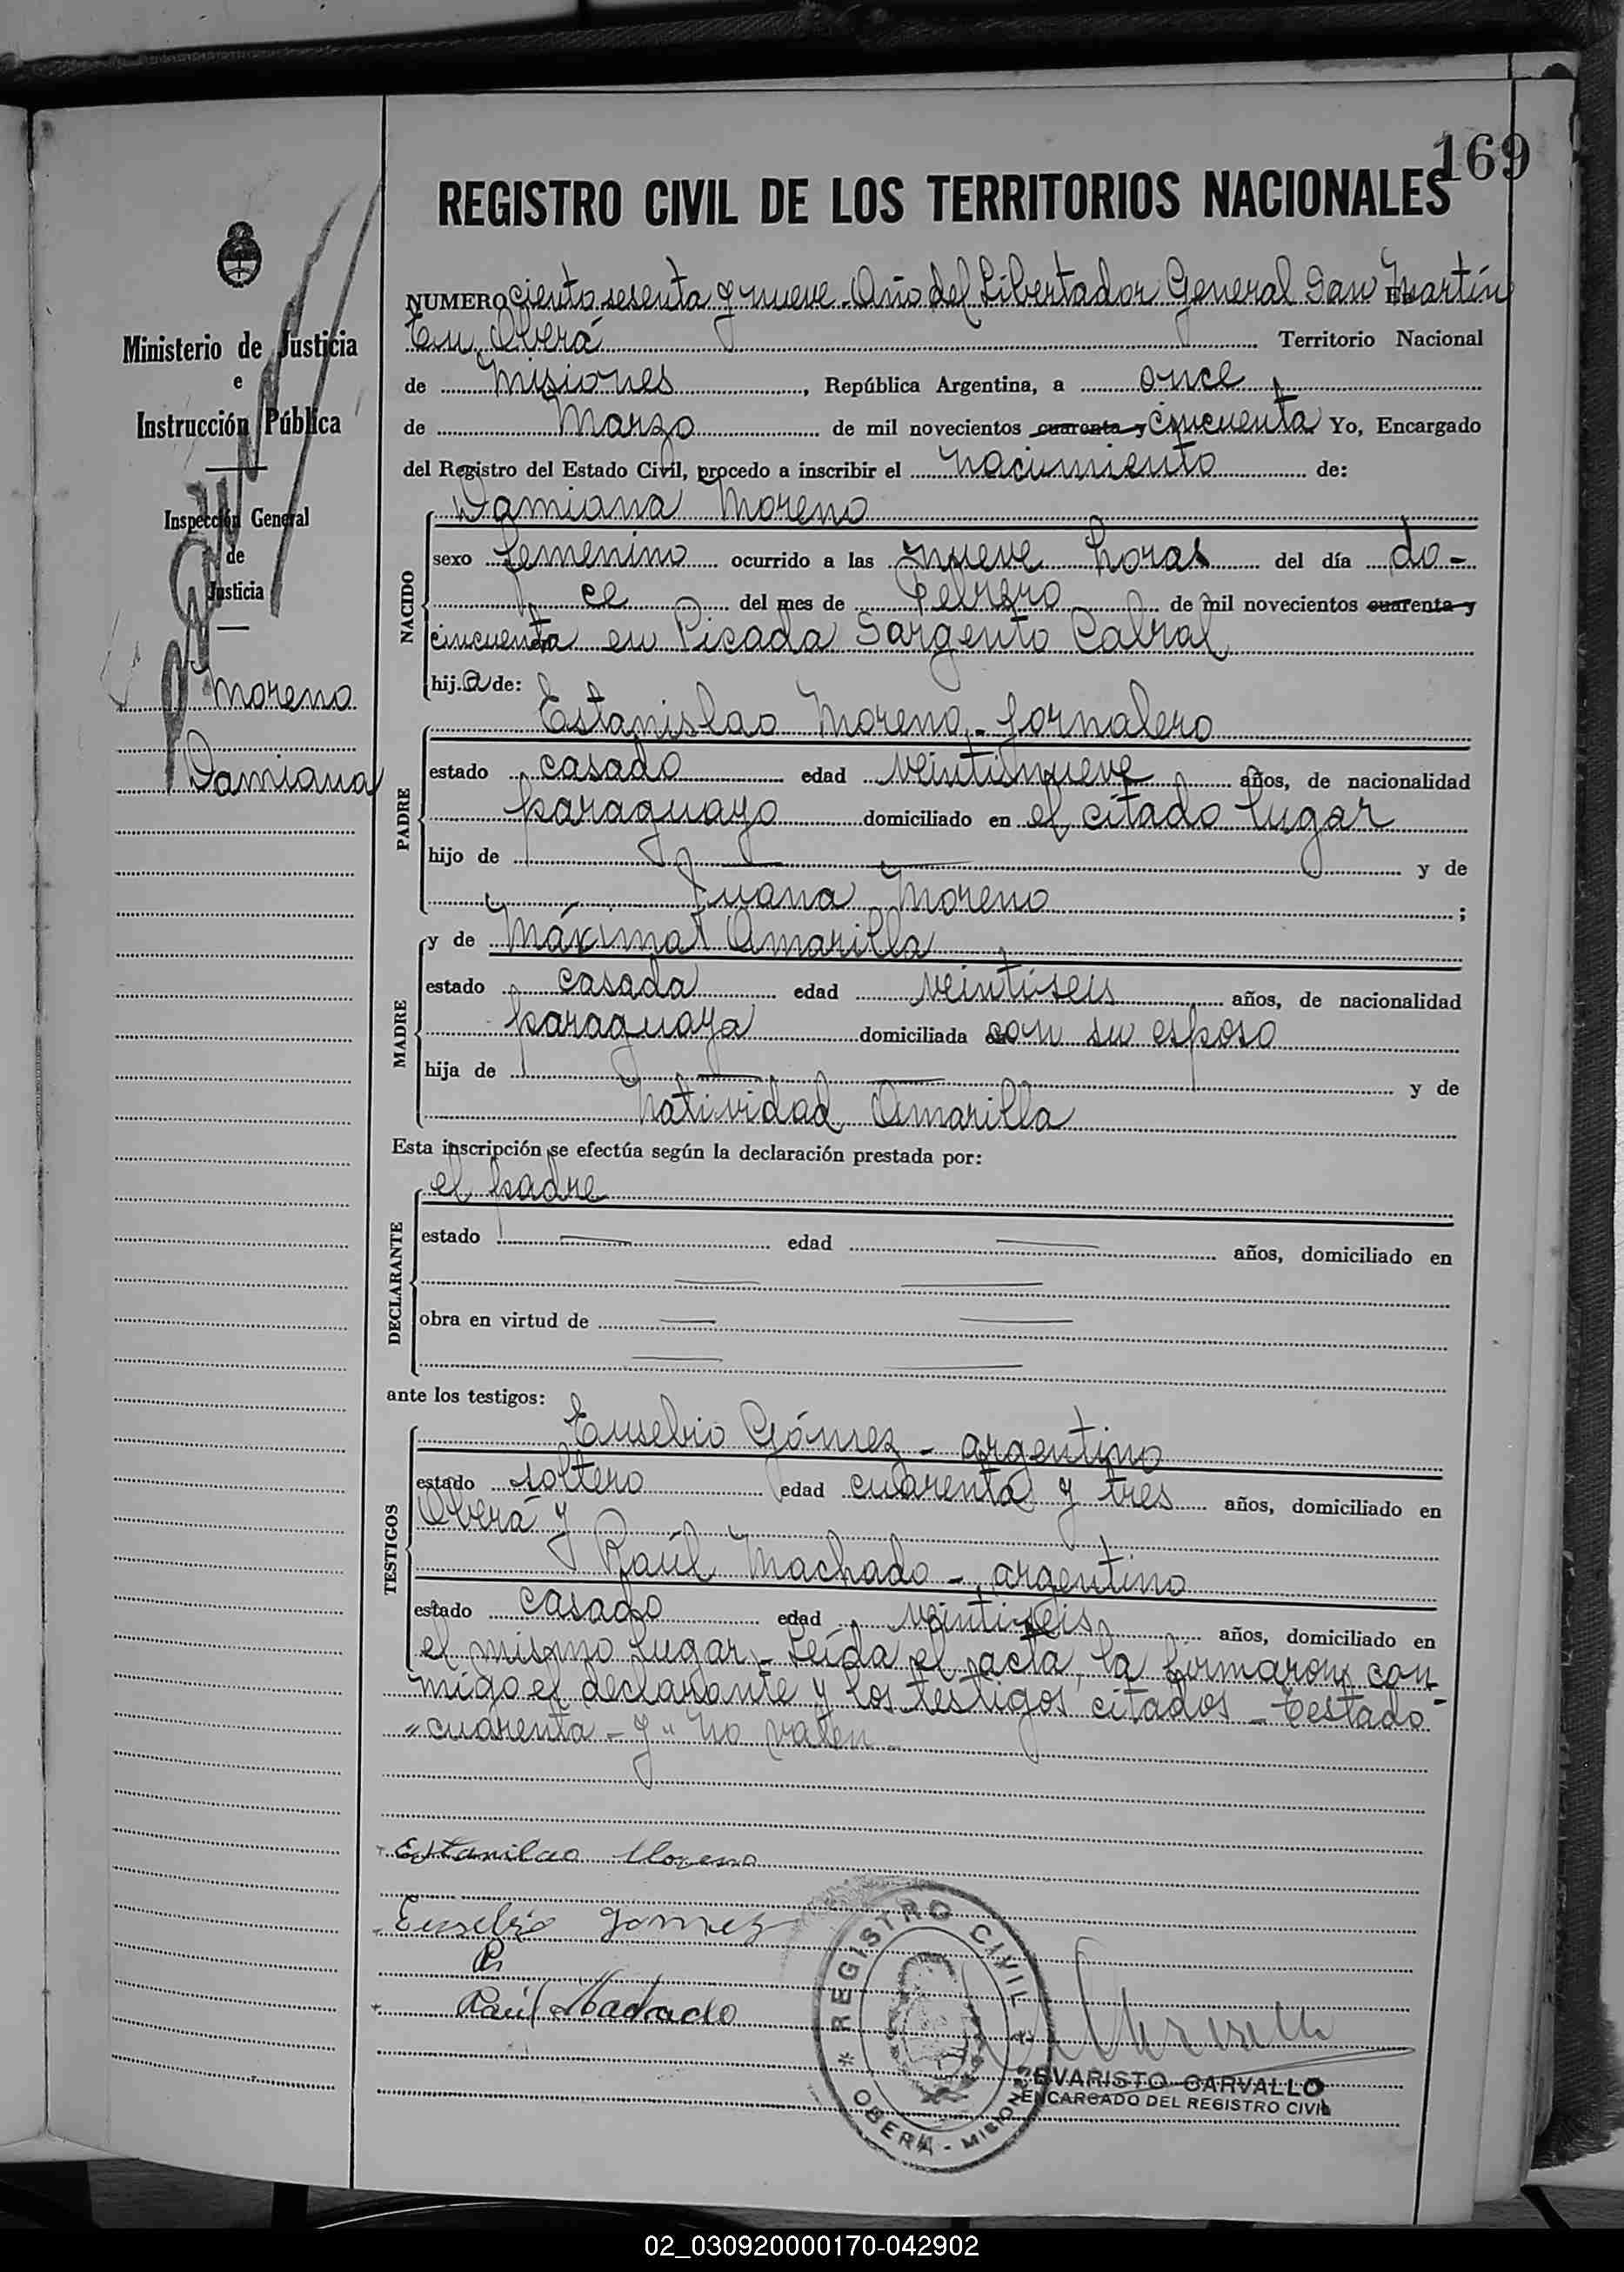 169
REGISTRO CIVIL DE LOS TERRITORIOS NACIONALES
Ministerio de Justicia
e
Instrucción Pública
Inspección General
de
Justicia
Moreno
Damiana
NUMERO ciento sesenta y nueve - Año del Libertador General San Martín
En Oberá Territorio Nacional
de Misiones, República Argentina, a once
de Marzo de mil novecientos cuarenta y cincuenta Yo, Encargado
del Registro del Estado Civil, procedo a inscribir el nacimiento de:
NACIDO
Damiana Moreno
sexo femenino ocurrido a las nueve horas del día do-
ce del mes de Febrero de mil novecientos cuarenta y
cincuenta en Picada Sargento Cabral
hija de:
PADRE
Estanislao Moreno - jornalero
estado casado edad veintinueve años, de nacionalidad
paraguayo domiciliado en el citado lugar
hijo de y de
Juana Moreno ;
MADRE
y de Máxima Amarilla
estado casada edad veintiseis años, de nacionalidad
paraguaya domiciliada con su esposo
hija de y de
Natividad Amarilla
Esta inscripción se efectúa según la declaración prestada por:
DECLARANTE
el padre
estado edad años, domiciliado en
obra en virtud de
ante los testigos:
TESTIGOS
Eusebio Gómez - argentino
estado soltero edad cuarenta y tres años, domiciliado en
Oberá y
Raúl Machado - argentino
estado casado edad veintiseis años, domiciliado en
el mismo lugar - Leída el acta, la firmaron con-
migo el declarante y los testigos citados - Testado-
"cuarenta - y" no valen -
Estanilao Moreno
Eusebio Gomez
R
Raúl Machado
* REGISTRO CIVIL *
OBERA - MISIONES
EVARISTO CARVALLO
ENCARGADO DEL REGISTRO CIVIL
02_030920000170-042902